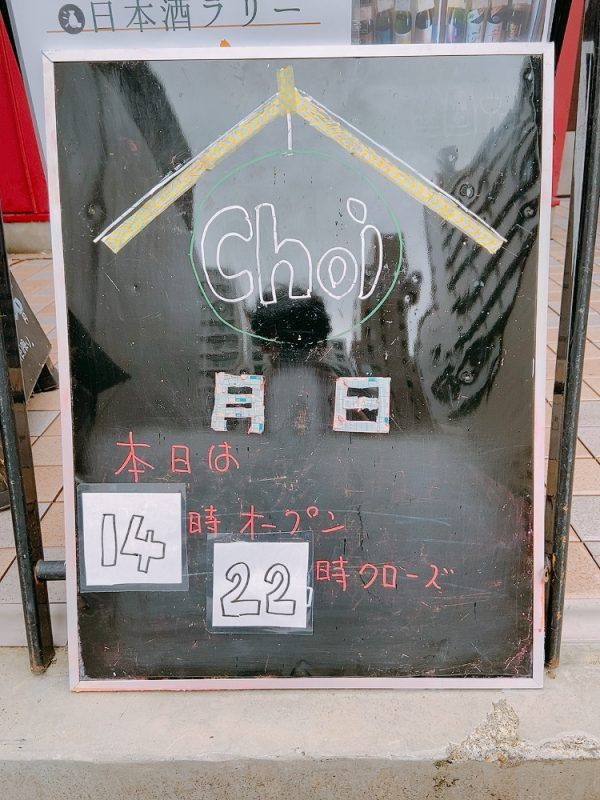 日本酒ラリー
Choi
月 日
本日は
14時オープン
22時クローズ